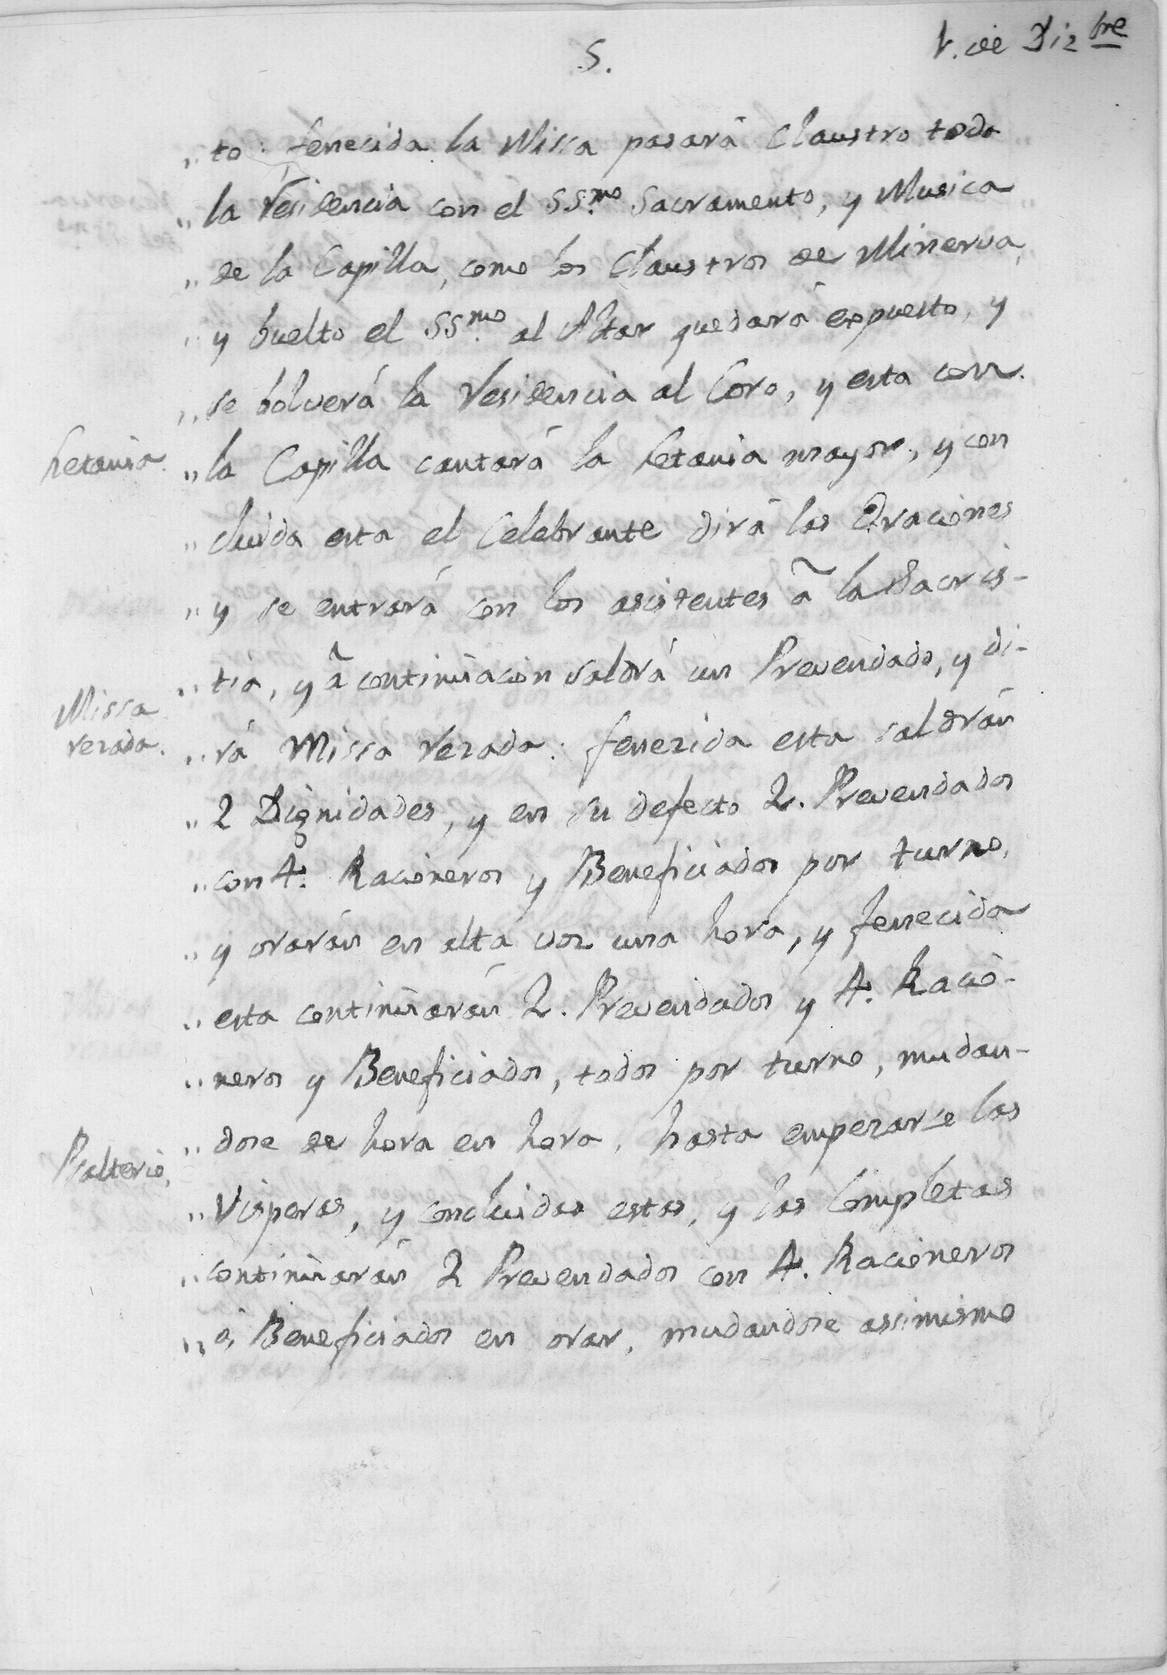 5.
1. de Diz.bre
„ to: fenecida la Missa pasará Claustro toda
„ la Residencia con el SS.mo Sacramento, y Musica
„ de la Capilla, como los Claustros de Minerva,
„ y buelto el SS.mo al Altar quedará expuesto, y
„ se bolverá la Residencia al Coro, y esta con
Letania.
„ la Capilla cantará la Letania mayor, y con
„ cluida esta el Celebrante dirá las Oraciones
„ y se entrará con los asistentes â la Sacris-
„ tia, y â continuacion saldrá un Prevendado, y di-
Missa
rezada.
„ rá Missa rezada: fenezida esta saldrán
„ 2 Dignidades, y en su defecto 2. Prevendados
„ con 4. Racioneros y Beneficiados por turno,
„ y orarán en alta voz una hora, y fenecida
„ esta continuarán 2. Prevendados y 4. Racio-
„ neros y Beneficiados, todos por turno, mudan-
„ dose de hora en hora, hasta empezarse las
Psalterio,
„ Visperas, y concluidas estas, y las Completas
„ continuarán 2 Prevendados con 4. Racioneros
„ ó, Beneficiados en orar, mudandose assimismo